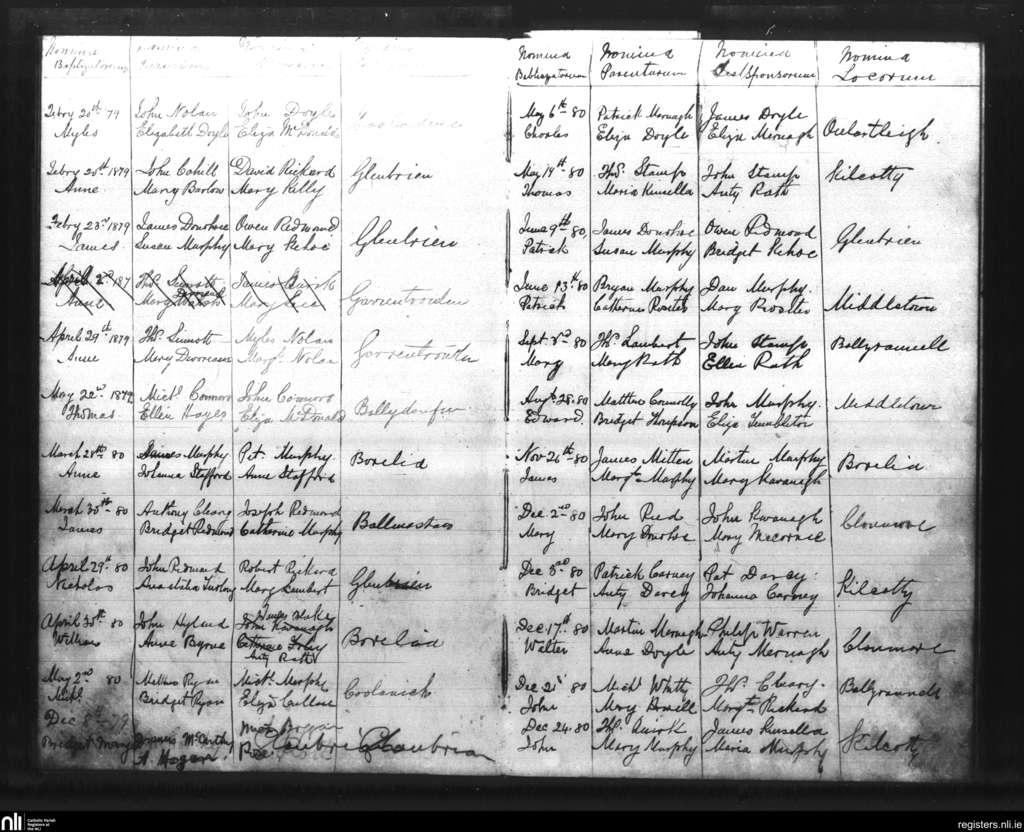 Nomina Nomina
Baptizatorum
Febry 20th 79 John Nolan John Doyle
Myles Elizabeth Doyle Eliza
Febry 20th 1879 John Cahill David Rickard Glenbrien
Anne Mary Barlow Mary Kelly
Febry 23rd 1879 James Donohoe Owen Redmond Glenbrien
James Susan Murphy Mary Kehoe
April 2nd 187 Ths. Sinnott James Quirk Garrentrouden
Anne Mary
April 29th 1879 Ths. Sinnott Myles Nolan
Anne Mary Devereux Margt. Nolan
May 22nd 1879 Michl. Connors John Connors
Thomas Ellen Hayes Eliza McDonald
March 28th 80 James Murphy Pat. Murphy Borelid
Anne Johanna Stafford Anne Stafford
March 30th 80 Anthony Cleary Joseph Redmond
James Bridget Redmond Catherine Murphy
April 29th 80 John Redmond Robert Rickard Glenbrien
Nicholas Anastatia Furlong Mary Lambert
James
April 30th 80 John Hyland John Kavanagh Borelid
William Anne Byrne Catherine Foley
Anty Rath
May 2nd 80 Mathew Ryan Michl. Murphy Coolanick
Michl. Bridget Ryan Eliza Cullen
Dec 8th 79
Bridget Mary McCarthy Glenbrien
A. Hogan
Nomina Nomina Nomina Nomina
Parentum Locorum
May 6th 80 Patrick Mernagh James Doyle Oulartleigh
Charles Eliza Doyle Eliza Mernagh
May 19th 80 Ths. Stamp John Stamp Kilcotty
Thomas Maria Kinsella Anty Rath
June 9th 80 James Donohoe Owen Redmond Glenbrien
Patrick Susan Murphy Bridget Kehoe
June 13th 80 Bryan Murphy Dan Murphy Middletown
Patrick Catherine Rositer Mary Rositer
Sept 3rd 80 Ths. Lambert John Stamp
Mary Mary Rath Ellen Rath
Augt. 28. 80 Matthew Connolly John Murphy Middletown
Edward Bridget Thompson Eliza Tumbleton
Nov 26th 80 James Mitten Martin Murphy Borelid
James Margt. Murphy Mary Kavanagh
Dec 2nd 80 John Reed John Kavanagh Clonmore
Mary Mary Donohoe Mary McCormic
Dec 3rd 80 Patrick Carney Pat Darcy Kilcotty
Bridget Anty Darcy Johanna Carney
Dec 17th 80 Martin Mernagh Philip Warren Clonmore
Walter Anne Doyle Anty Mernagh
Dec 21st 80 Michl. Whitty Ths. Cleary
John Mary Margt.
Dec 24. 80 Ths. Quirk James Kinsella Kilcotty
John Mary Murphy Maria Murphy
nli Catholic Parish
Registers at
the NLI
registers.nli.ie